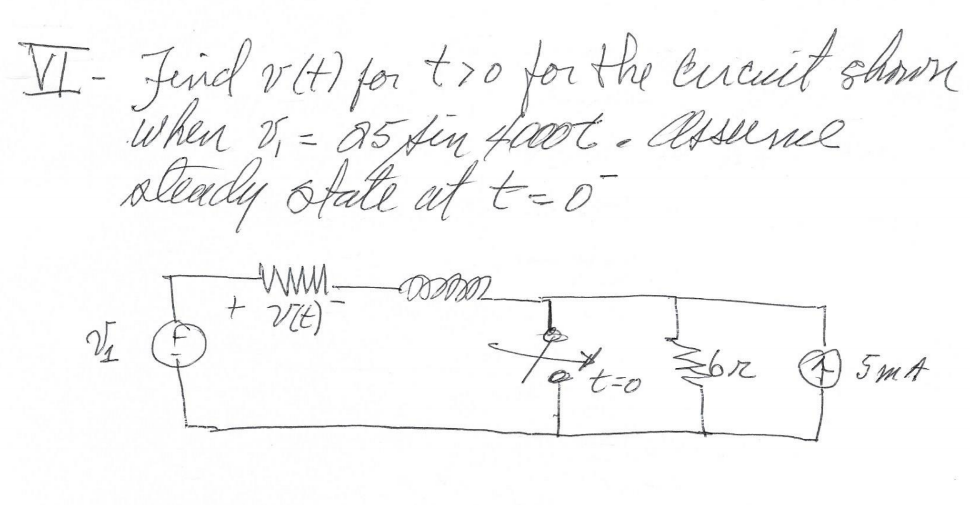 VI - Find v(t) for t>0 for the circuit shown
when v₁ = 25 sin 4000t. Assume
steady state at t=0⁻
+ v(t) -
v₁
t=0
6Ω
5mA